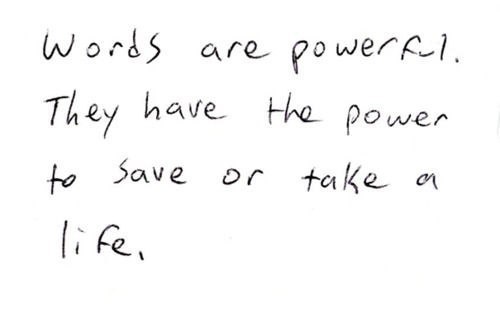 Words are powerful.
They have the power
to save or take a
life.